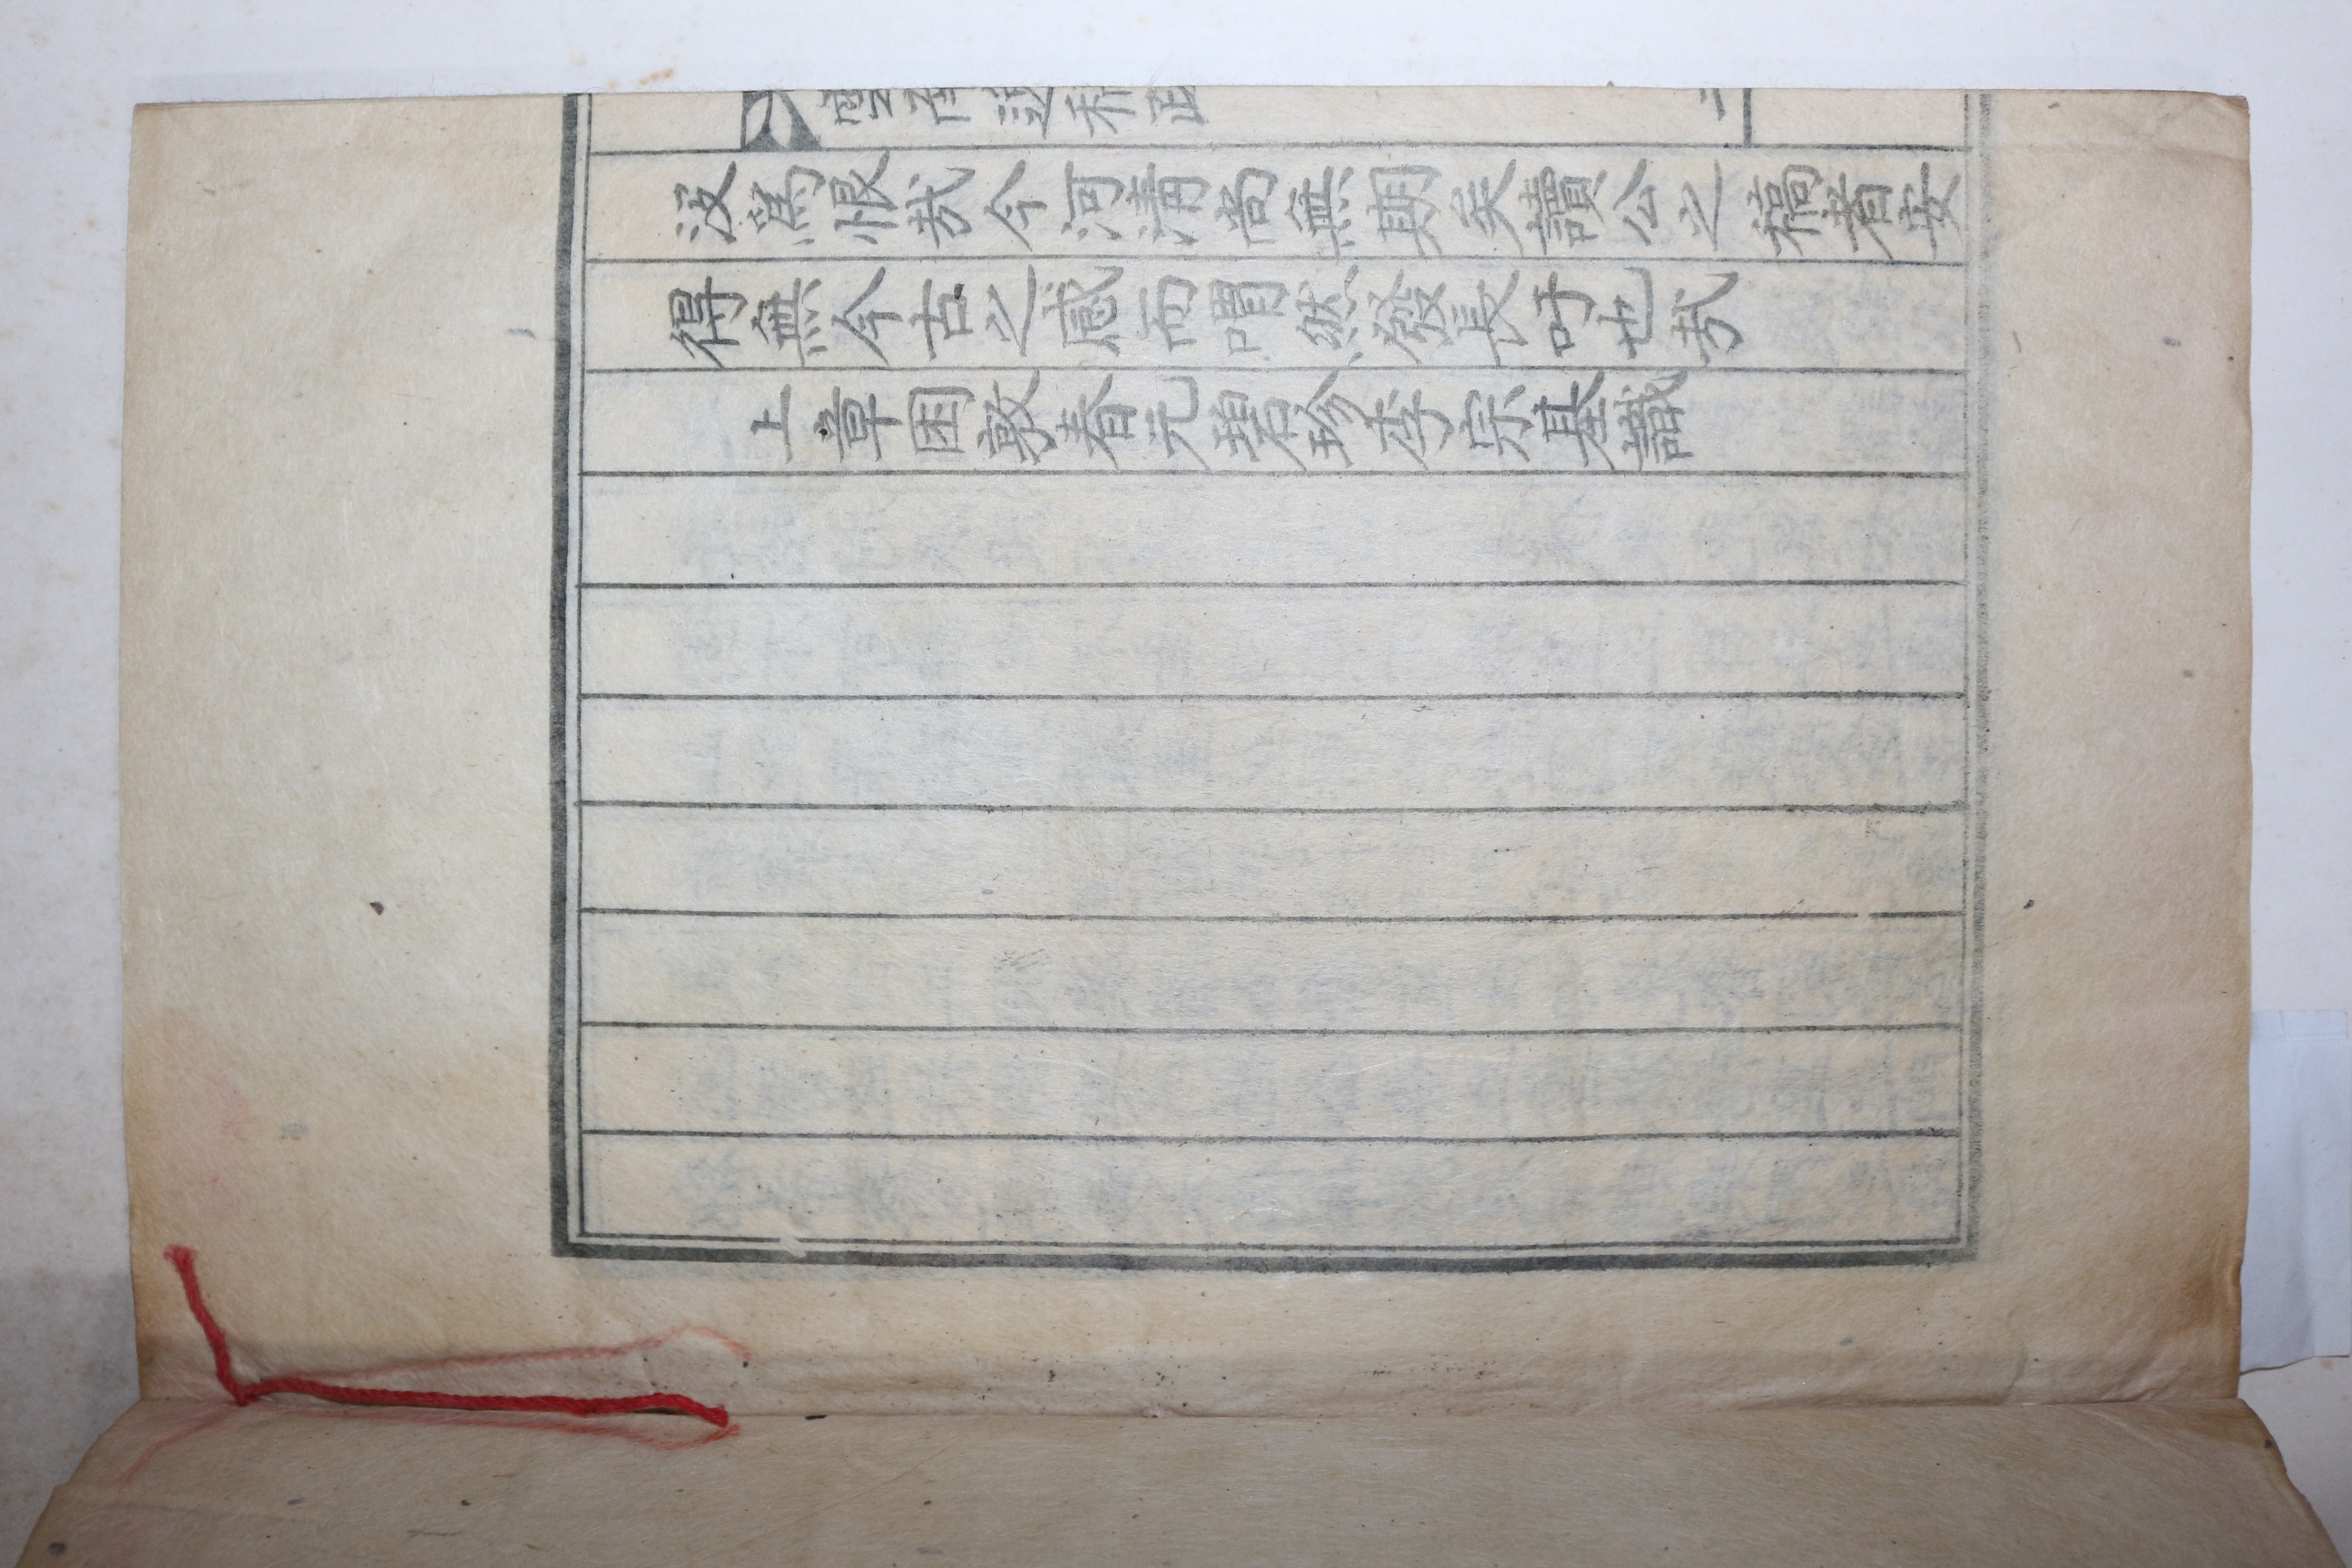 雲
逸稿跋
二
没爲恨哉今河淸尙無期矣讀公之稿者安
得無今古之感而喟然發長吁也哉
上章困敦春元碧珍李宗基識